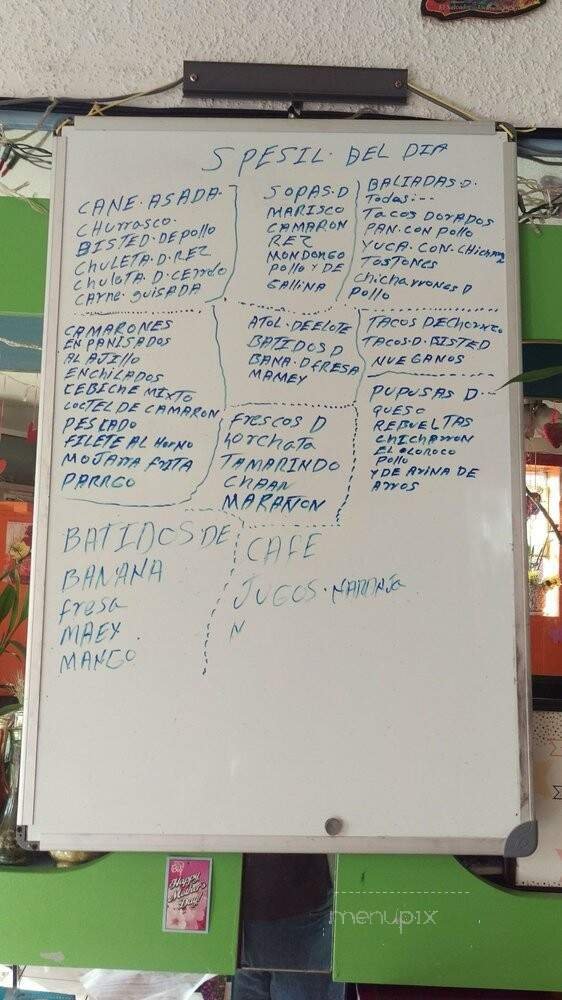 El Salvador
SPESIL. DEL DIA
CANE. ASADA.
CHURRASCO.
BISTED. DE pollo
CHULETA. D. REZ
Chulota. D. CErdo
CARNE. GUISADA
SOPAS. D
MARISCO
CAMARON
REZ
MONDONGO
pollo Y DE
GALLINA
BALIADAS. D.
Todas...
TACOS DORADOS
PAN. CON POLLO
YUCA. CON. CHicharr
TOSTONES
chicharrones D
pollo
CAMARONES
EN PANISADOS
AL AJILLO
ENCHILADOS
CEBICHE MIXTO
COCTEL DE CAMARON
PESCADO
FILETE AL HORNO
MOJARRA frITA
PARRGO
ATOL. DE ELOTE
BATIDOS D
BANA. D fRESA
MAMEY
TACOS DE Chorrzo
TACOS. D. BISTED
NUEGANOS
frescos D
horchata
TAMARINDO
CHAAN
MARAÑON
PUPUSAS D...
QUESO
REBUELTAS
CHICHARRON
EL OLOROCO
POLLO
Y DE ARINA DE
Arros
BATIDOS DE
BANANA
fresa
MAEY
MANGO
CAFE
JUGOS. NARANJA
N
Happy
Mother's
Day!
menupix